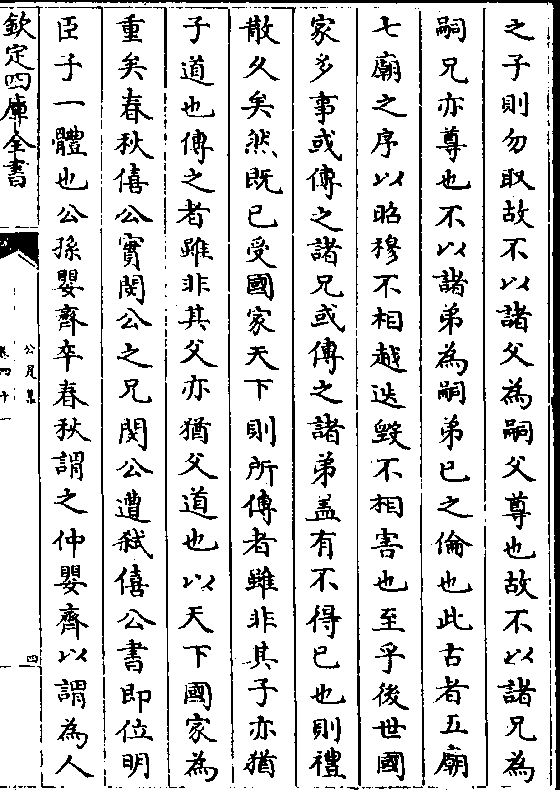 之子則勿取故不以諸父為嗣父尊也故不以諸兄為
嗣兄亦尊也不以諸弟為嗣弟已之倫也此古者五廟
七廟之序以昭穆不相越迭毀不相害也至乎後世國
家多事或傳之諸兄或傳之諸弟盖有不得已也則禮
散久矣然既已受國家天下則所傳者雖非其子亦猶
子道也傳之者雖非其父亦猶父道也以天下國家為
重矣春秋僖公實閔公之兄閔公遭弑僖公書即位明
臣子一體也公孫嬰齊卒春秋謂之仲嬰齊以謂為人
欽定四庫全書
公是集
卷四十一
四